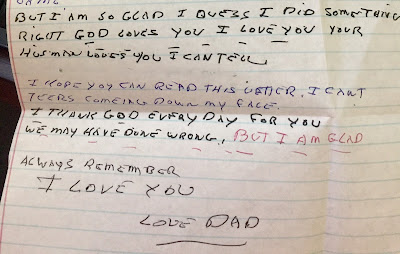 BUT I AM SO GLAD I QUESS I DID SOMETHING
RIGHT GOD LOVES YOU I LOVE YOU YOUR
HUSMAN LOVES YOU I CAN TELL
I HOPE YOY CAN READ THIS LETTER. I CANT
TEERS COMEING DOWN MY FACE.
I THANK GOD EVERY DAY FOR YOU
WE MAY HAVE DONE WRONG, BUT I AM GLAD
ALWAYS REMEMBER
I LOVE YOU
LOVE DAD